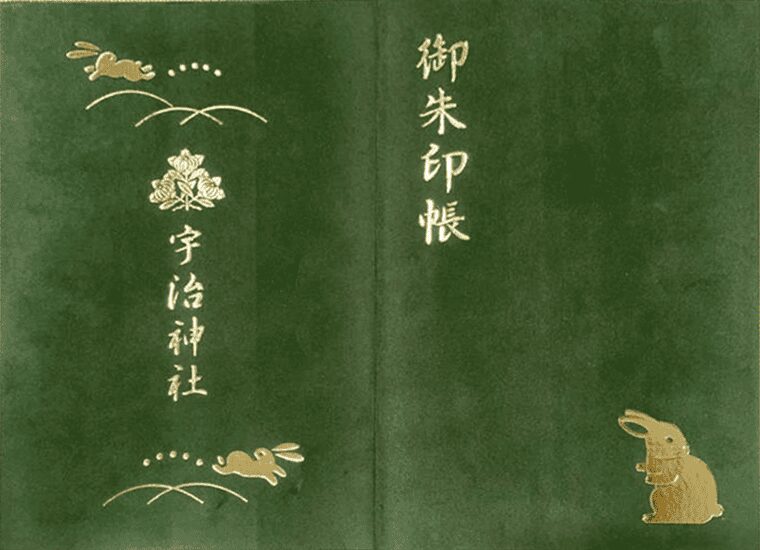 御朱印帳
宇治神社